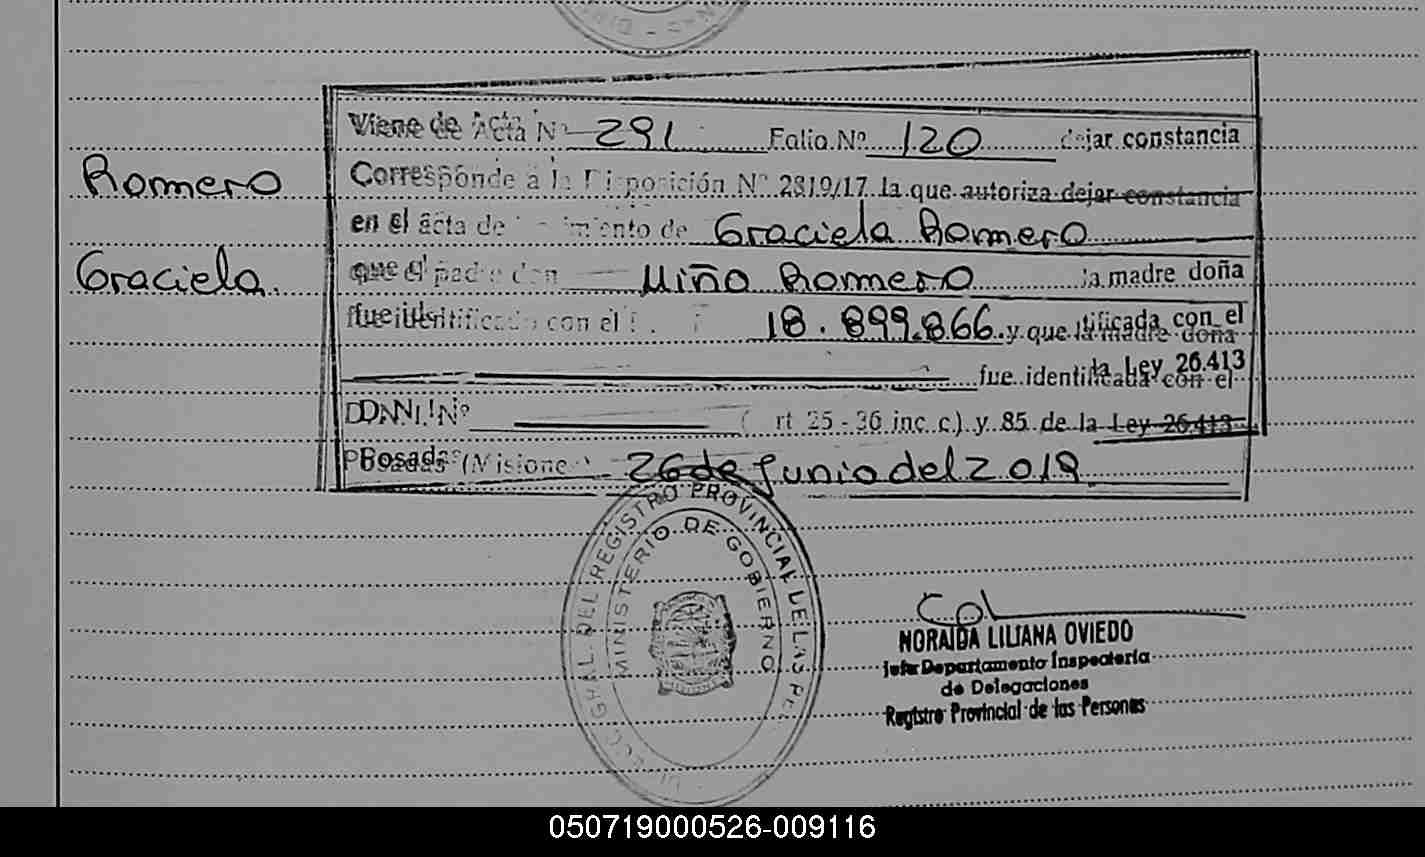 Romero
Graciela
Viene de Acta Nº 291 Folio Nº 120 dejar constancia
Corresponde a la Disposición Nº 2819/17 la que autoriza dejar constancia
en el acta de nacimiento de Graciela Romero
que el padre don Miño Romero la madre doña
fue identificado con el 18.899.866 y que la madre doña tificada con el
fue identificada con el la Ley 26.413
D.N.I. Nº rt 25 - 36 inc c.) y 85 de la Ley 26.413
Posadas (Misiones) 26 de Junio del 2019
DEL REGISTRO PROVINCIAL DE LAS
MINISTERIO DE GOBIERNO
NORAIDA LILIANA OVIEDO
Jefa Departamento Inspectoría
de Delegaciones
Registro Provincial de las Personas
050719000526-009116